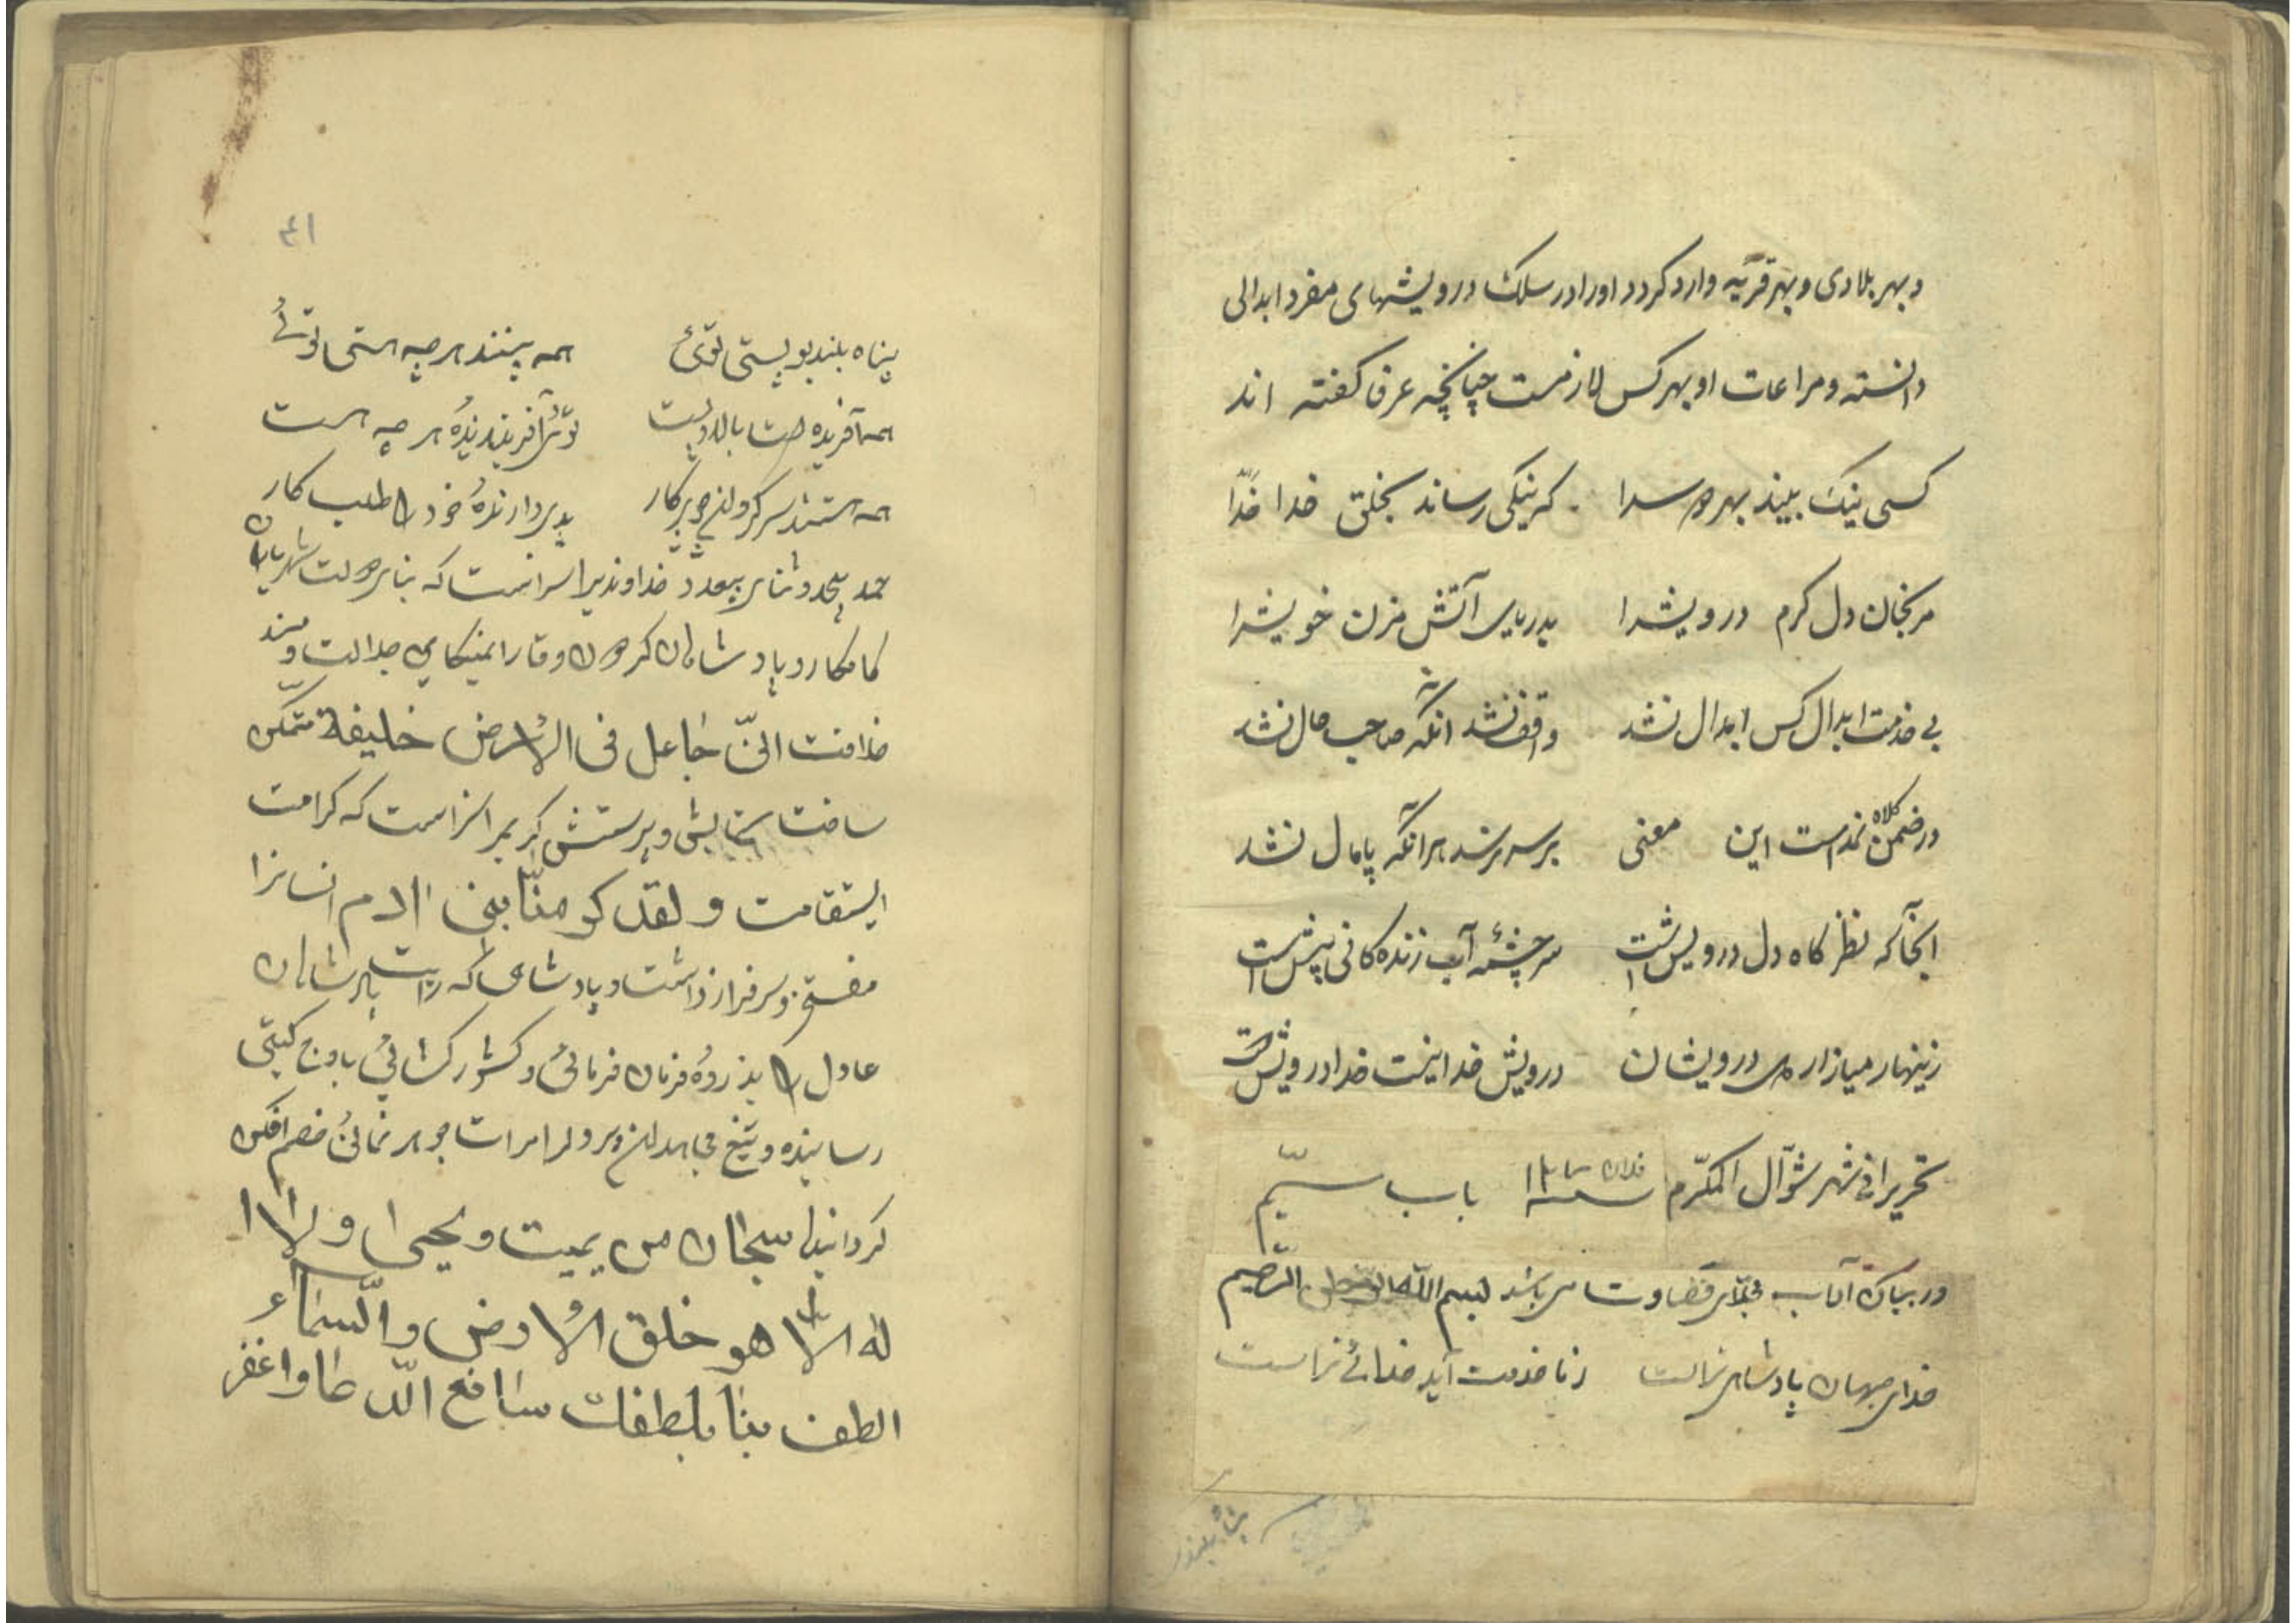 و بهر بلادی و بهر قریه وارد کردد اورا در سلک درویشهای مفرد ابدالی
دانسته و مراعات او بهر کس لازمست چنانچه عرفا کفته اند
کسی نیک بیند بهر دو سرا که نیکی رساند بخلق خدا
مرنجان دل کرم درویشرا بدریای آتش مزن خویشرا
بی خدمت ابدال کس ابدال نشد واقف نشد آنکه صاحب حال نشد
در ضمن کلاه نمد است این معنی بر سر نرسد هر آنکه پامال نشد
آنجا که نظر کاه دل درویش است سر چشمهٔ آب زندکانی پیش است
زینهار میازار دل درویشان درویش خدا نیست خدا درویش است
تحریرا فی شهر شوّال المکرّم سنه باب سیّم
در بیان آداب می باشد بسم الله الرّحمن الرّحیم
خدای جهان پادشاهی تراست ز ما خدمت آید خدائی تراست
۴۱
پناه بلندی و پستی توئی همه نیستند هر چه هستی توئی
همه آفریده است بالا و پست توئی آفریننده هر چه هست
همه هستند سرکشته چو پرکار پدیدآرندهٔ خود را طلب کار
حمد بیحد و ثنای بیعدد خداوندیرا سزاست که بنای دولت شهریاران
کامکار و پادشاهان کردون وقار را عدالت و مسند
خلافت انّی جاعل فی الارض خلیفة متمکن
ساخت ستایش و پرستش کریمرا سزاست که کرامت
استقامت و لقد کرمنا بنی ادم انسانرا
مفتخر و سرفراز داشت و پادشاهی که رایت پادشاهان
عادل را بذروهٔ فرمان فرمائی و کشور کشائی باوج کیتی
رسانیده و تیغ مجاهدان را جوهر نمائی خصم افکن
کردانید سبحان من یمیت و یحیی و لا ا
له الا هو خلق الارض و السّماء
الطف بنا بلطفک سامع الدّعا و اغفر